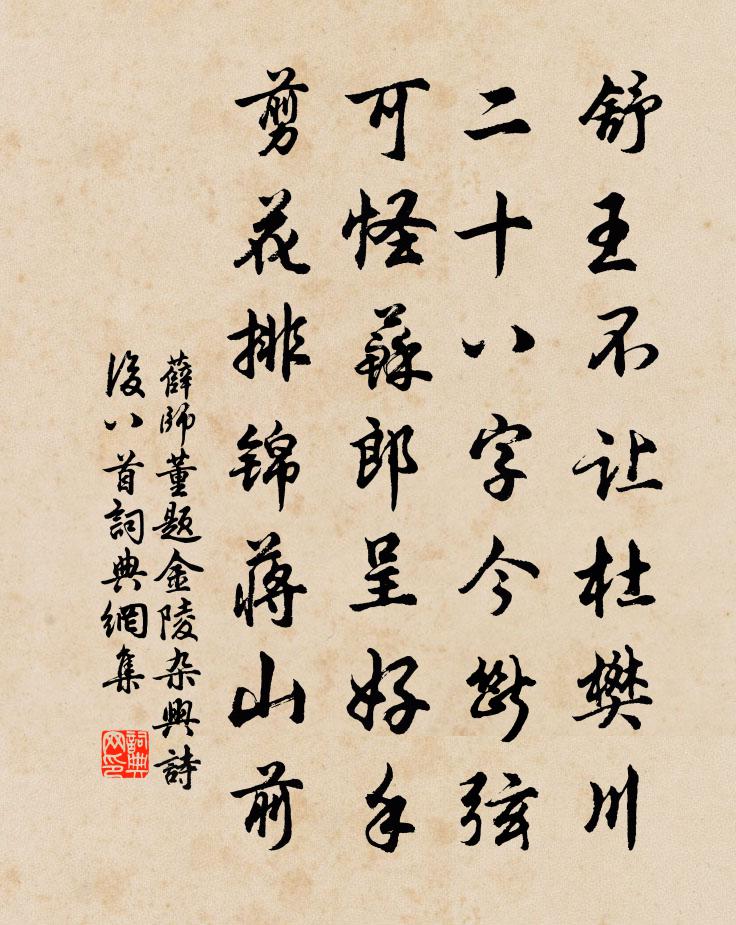 舒王不让杜樊川
二十八字今断弦
可怪蘇郎呈好手
剪花排锦蒋山前
薛師董题金陵杂興詩
後八首詞典網集
詞典
网印